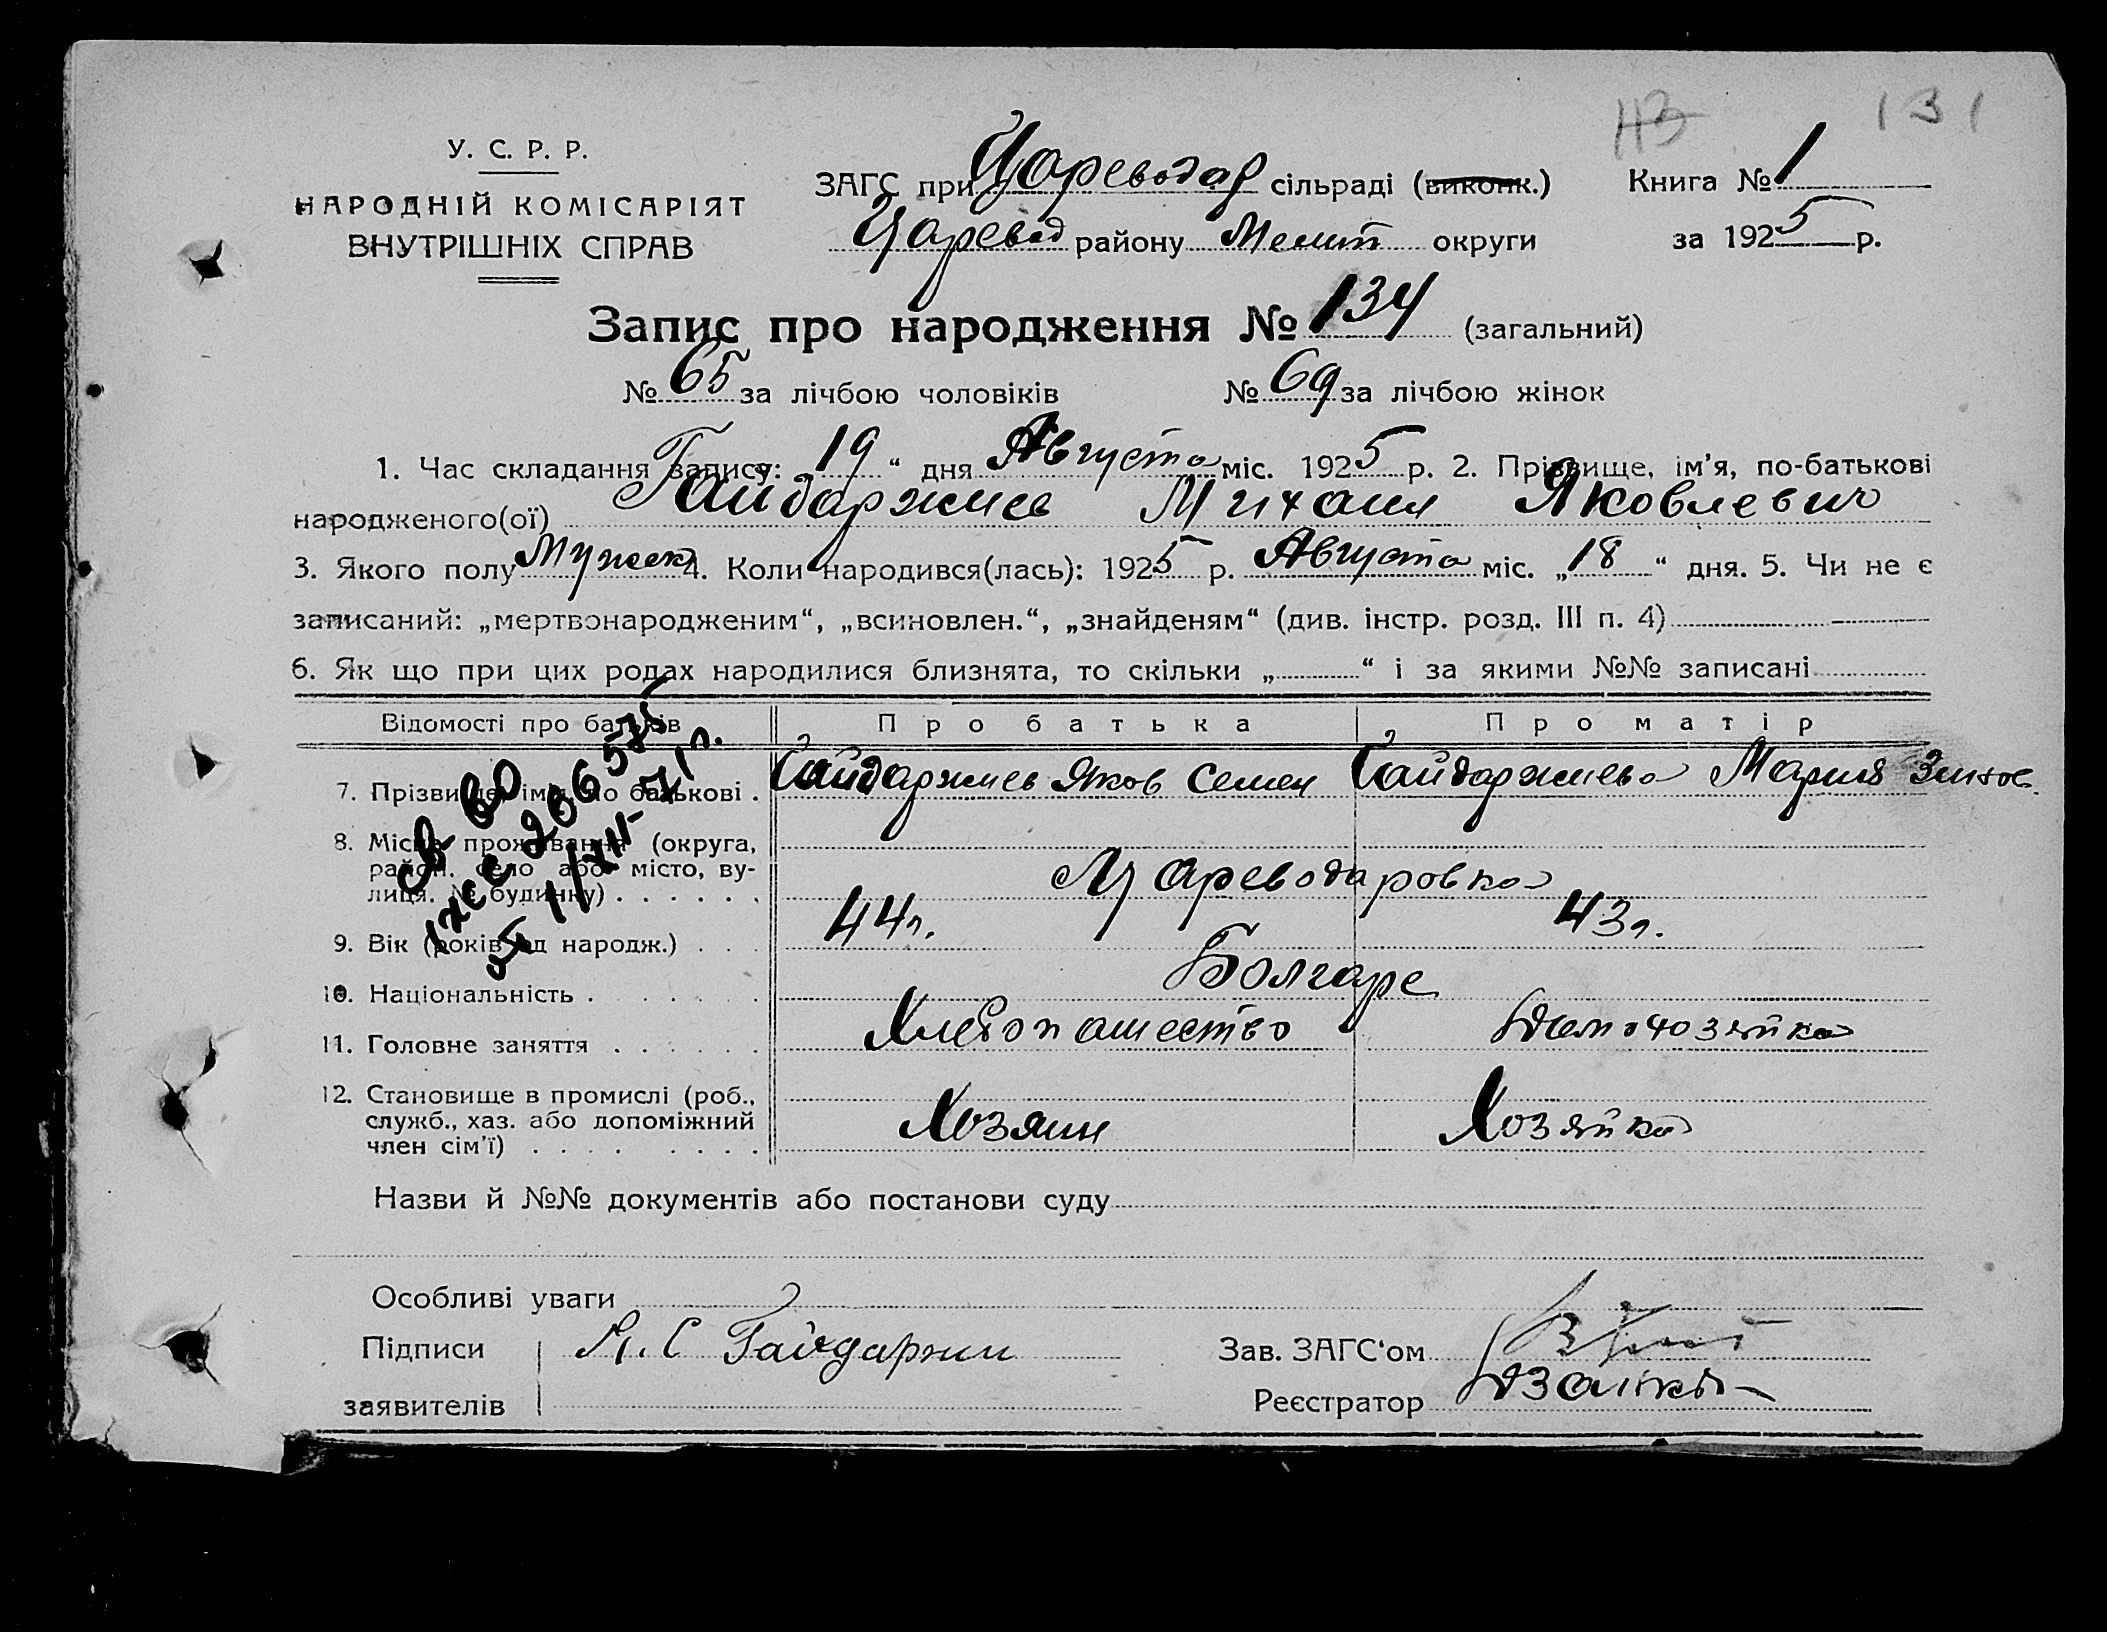 131
У. С. Р. Р.
НАРОДНІЙ КОМІСАРІЯТ
ВНУТРІШНІХ СПРАВ
ЗАГС при Цареводар сільраді (виконк.) Книга № 1
Царевод району Мелит округи за 1925 р.
Запис про народження № 134 (загальний)
№ 65 за лічбою чоловіків № 69 за лічбою жінок
1. Час складання запису: 19 “ дня Августа міс. 1925 р. 2. Прізвище, ім’я, по-батькові
народженого(ої) Гайдаржиев Михаил Яковлевич
3. Якого полу Мужск 4. Коли народився(лась): 1925 р. Августа міс. „18“ дня. 5. Чи не є
записаний: „мертвонародженим“, „всиновлен.“, „знайденям“ (див. інстр. розд. III п. 4)
6. Як що при цих родах народилися близнята, то скільки „ “ і за якими №№ записані
Відомості про батьків Про батька Про матір
7. Прізвище, ім’я, по батькові . Гайдаржиев Яков Семен Гайдаржиева Мария Зинов.
8. Місце проживання (округа,
район, село або місто, ву-
лиця, № будинку) . . . . . . Цареводаровка
9. Вік (років од народж.) . . . 44 г. 43 г.
10. Національність . . . . . Болгаре
11. Головне заняття . . . . . . Хлебопашество Домохозяйка
12. Становище в промислі (роб.,
служб., хаз. або допоміжний
член сім’ї) . . . . . . . . Хозяин Хозяйка
св во
206575
1/XII-71г.
Назви й №№ документів або постанови суду
Особливі уваги
Підписи Я. С Гайдаржи Зав. ЗАГС‘ом
заявителів Реєстратор